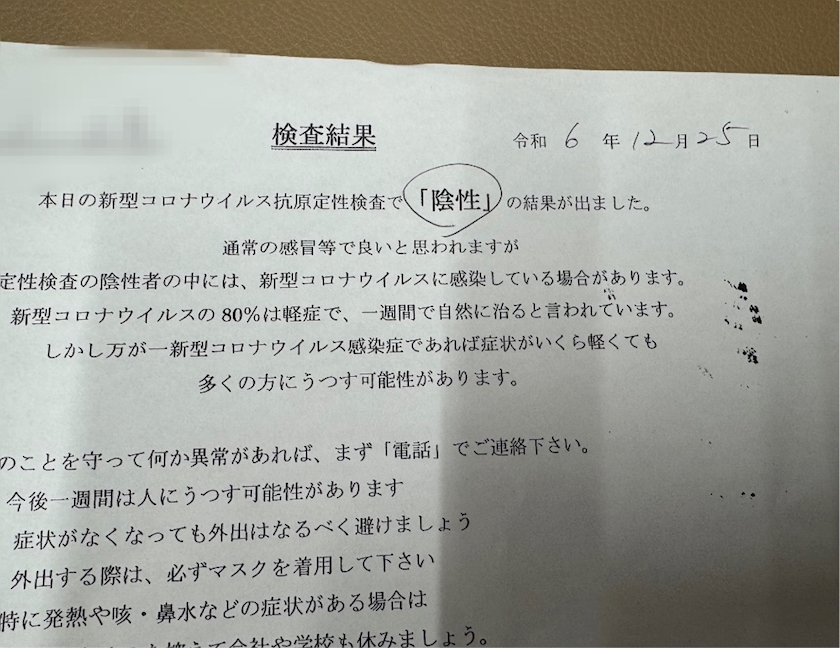 検査結果
令和 6 年 12月 25 日
本日の新型コロナウイルス抗原定性検査で「陰性」の結果が出ました。
通常の感冒等で良いと思われますが
定性検査の陰性者の中には、新型コロナウイルスに感染している場合があります。
新型コロナウイルスの 80%は軽症で、一週間で自然に治ると言われています。
しかし万が一新型コロナウイルス感染症であれば症状がいくら軽くても
多くの方にうつす可能性があります。
のことを守って何か異常があれば、まず「電話」でご連絡下さい。
今後一週間は人にうつす可能性があります
症状がなくなっても外出はなるべく避けましょう
外出する際は、必ずマスクを着用して下さい
特に発熱や咳・鼻水などの症状がある場合は
控えて会社や学校も休みましょう。